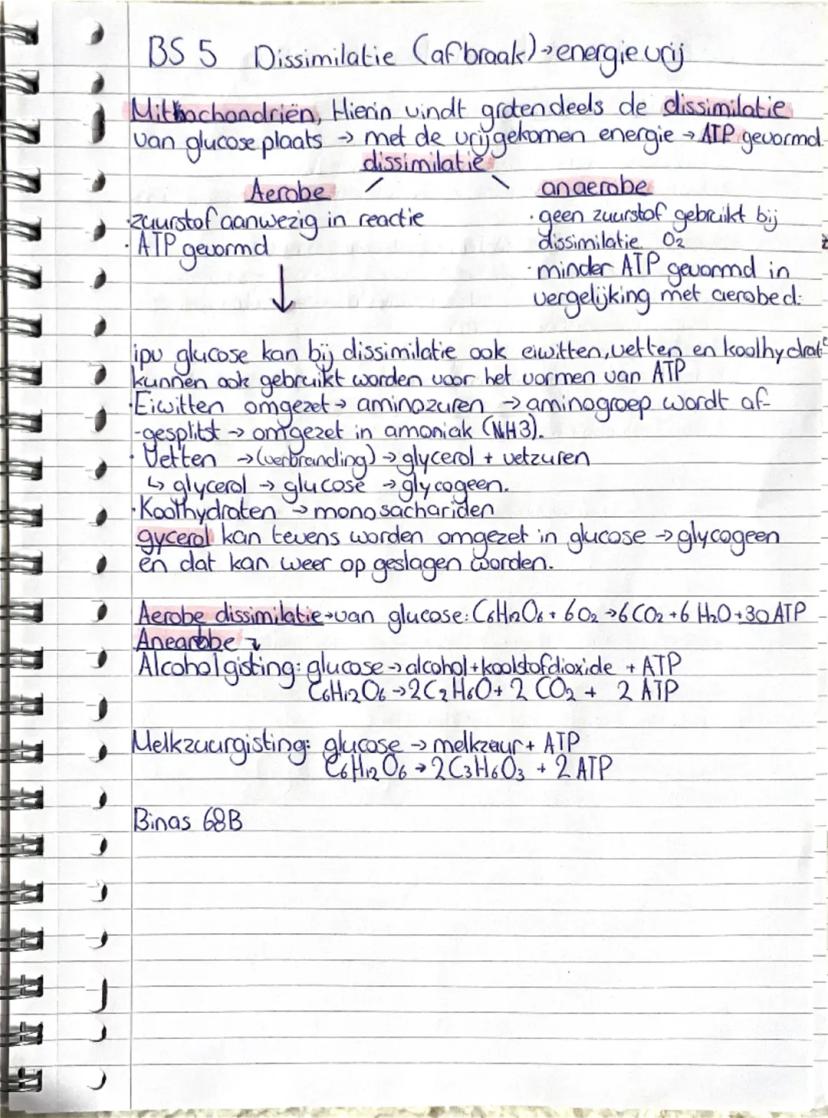 BS 5 Dissimilatie (afbraak)→energie vrij
Mithochondriën, Hierin vindt grotendeels de dissimilatie
van glucose plaats → met de vrijgekomen energie → ATP gevormd.
dissimilatie
Aerobe
anaerobe
·zuurstof aanwezig in reactie
· ATP gevormd
· geen zuurstof gebruikt bij
dissimilatie O2
· minder ATP gevormd in
vergelijking met aerobe d.
↓
ipv glucose kan bij dissimilatie ook eiwitten, vetten en koolhydrat
kunnen ook gebruikt worden voor het vormen van ATP
·Eiwitten omgezet→ aminozuren → aminogroep wordt af-
-gesplitst → omgezet in amoniak (NH3).
· Vetten →(verbranding)→glycerol + vetzuren
↳ glycerol → glucose →glycogeen.
·Koolhydraten → monosachariden
gycerol kan tevens worden omgezet in glucose → glycogeen
en dat kan weer op geslagen worden.
Aerobe dissimilatie→van glucose: C6H12O6 + 6O2 →6 CO2 +6 H2O +30 ATP
Anearobe ↴
Alcoholgisting: glucose → alcohol+koolstofdioxide + ATP
C6H12O6 →2C2H6O+ 2 CO2 + 2 ATP
Melkzuurgisting: glucose → melkzuur + ATP
C6H12O6 → 2C3H6O3 + 2 ATP
Binas 68B